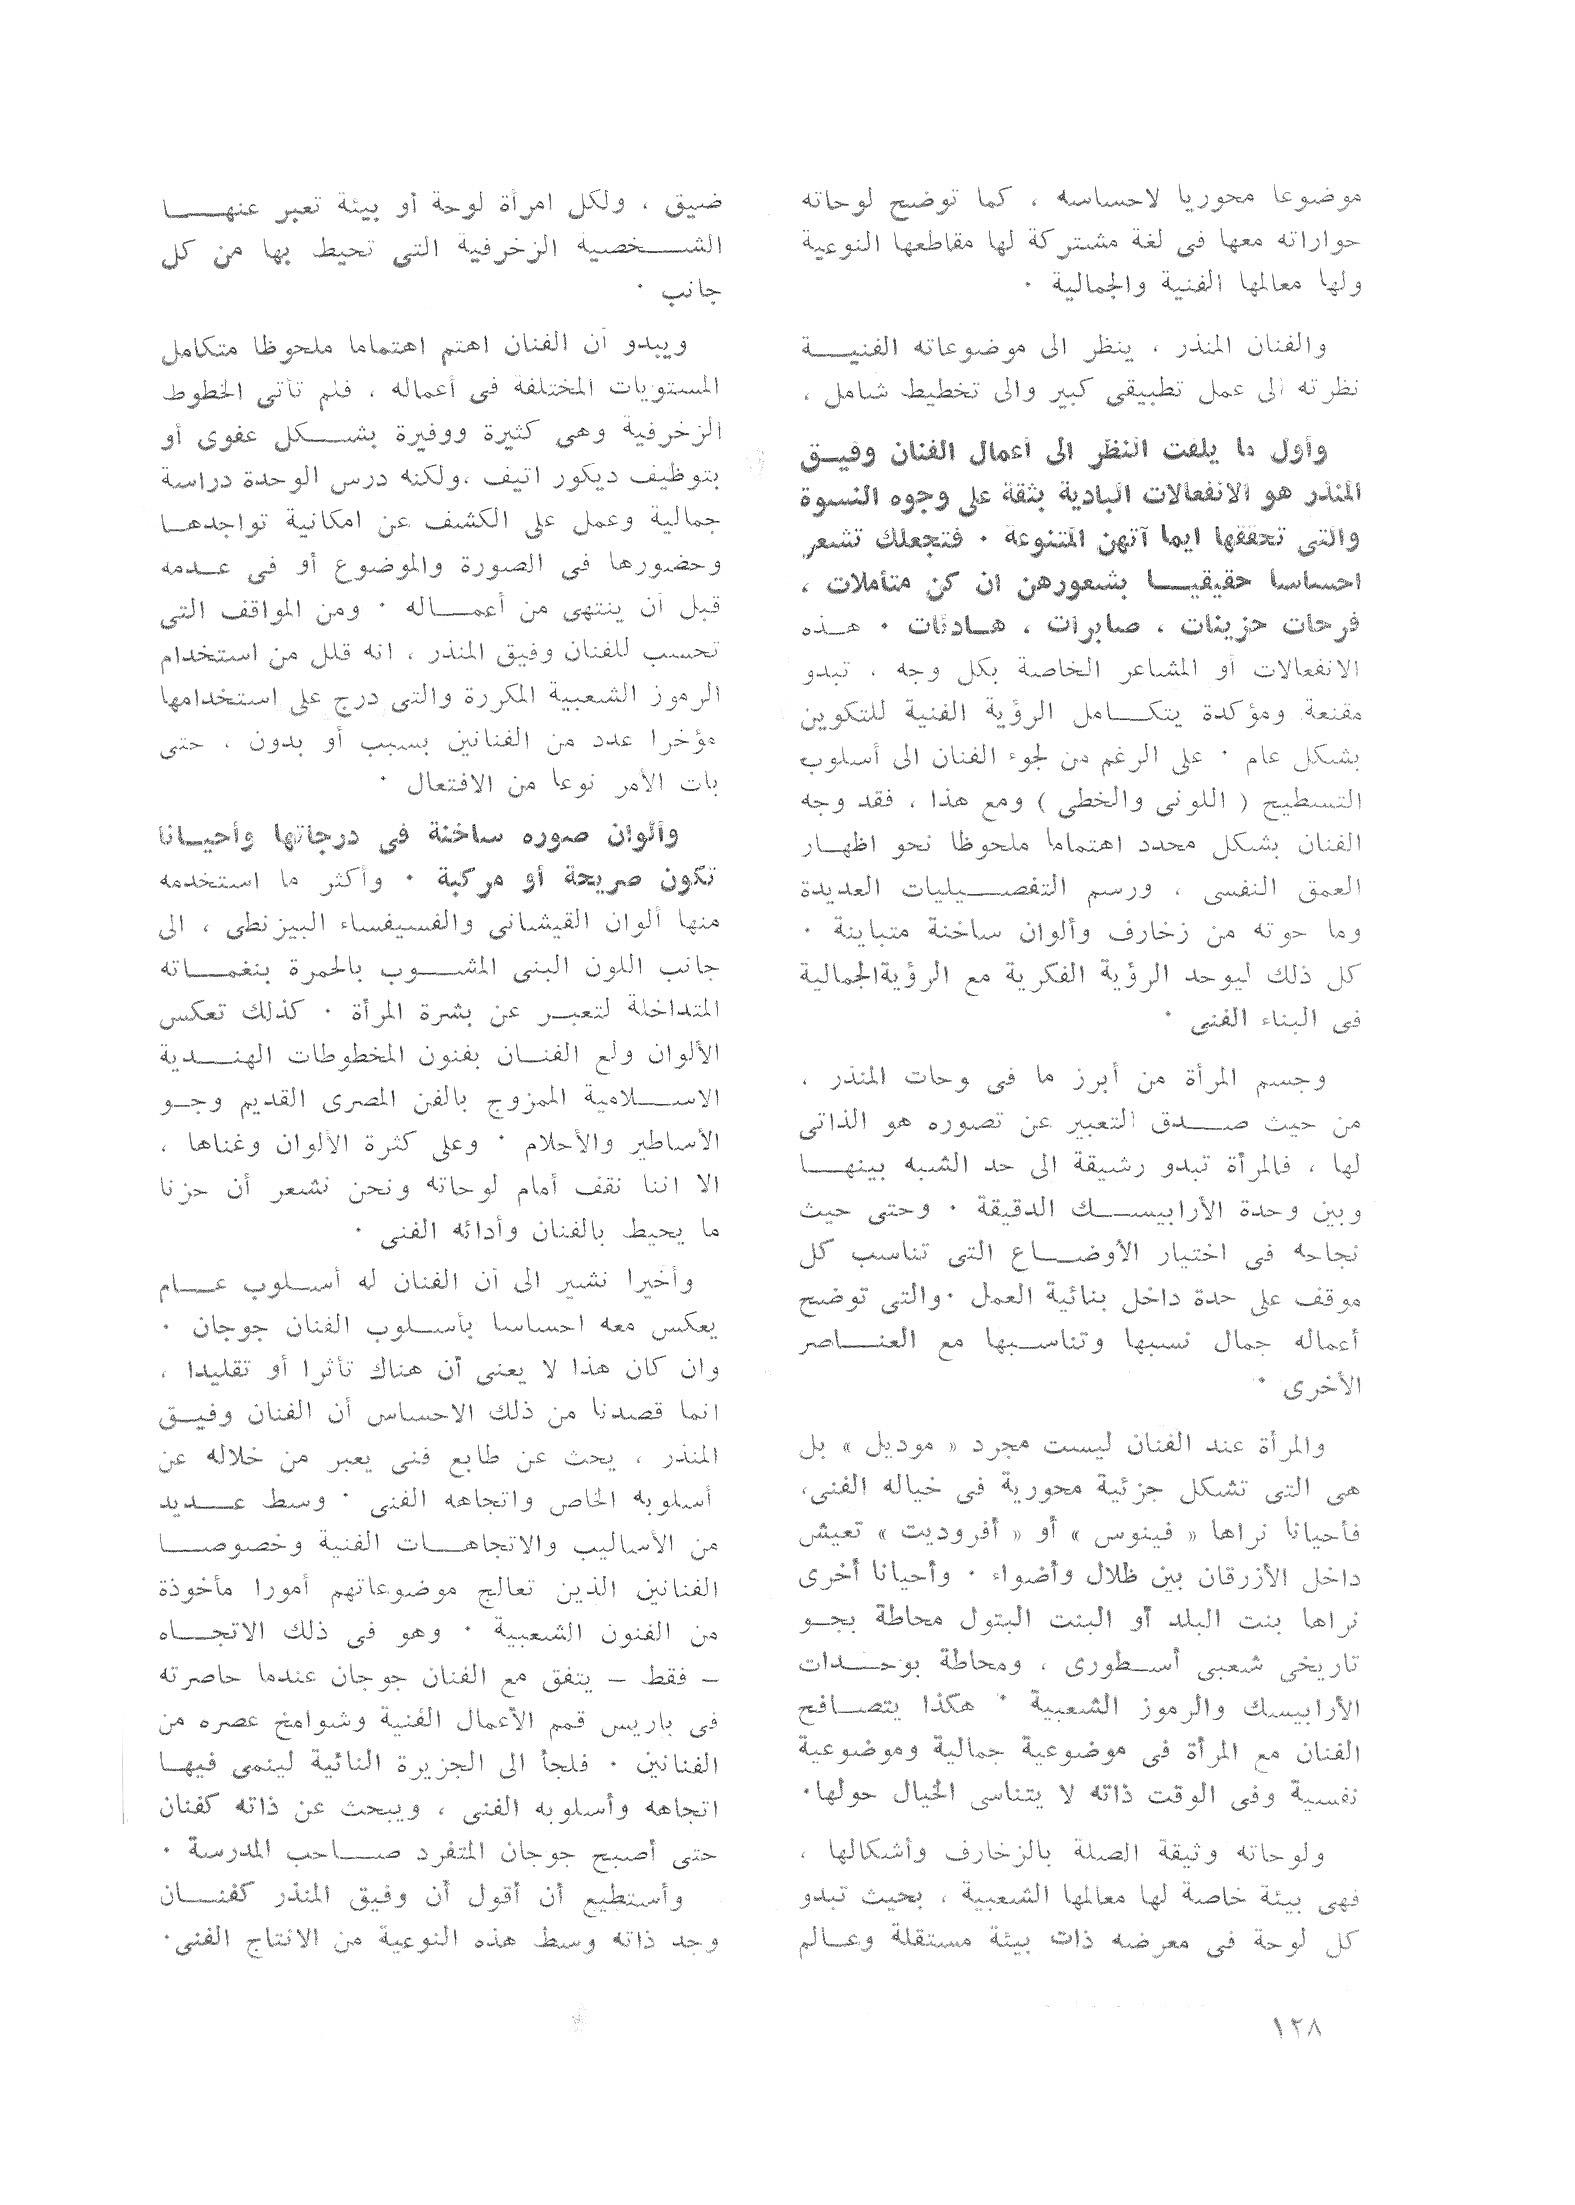 موضوعا محوريا لاحساسه ، كما توضح لوحاته
حواراته معها فى لغة مشتركة لها مقاطعها النوعية
ولها معالمها الفنية والجمالية ٠
والفنان المنذر ، ينظر الى موضوعاته الفنيـــة
نظرته الى عمل تطبيقى كبير والى تخطيط شامل ،
وأول ما يلفت النظر الى أعمال الفنان وفيـق
المنذر هو الانفعالات البادية بثقة على وجوه النسوة
والتى تحققها ايما آتهن المتنوعة ٠ فتجعلك تشعر
احساسا حقيقيـــا بشعورهن ان كن متأملات ،
فرحات حزينات ، صابرات ، هـادئات ٠ هـذه
الانفعالات أو المشاعر الخاصة بكل وجه ، تبدو
مقنعة ومؤكدة يتكـــامل الرؤية الفنية للتكوين
بشكل عام ٠ على الرغم من لجوء الفنان الى أسلوب
التسطيح ( اللونى والخطى ) ومع هذا ، فقد وجه
الفنان بشكل محدد اهتماما ملحوظا نحو اظهـار
العمق النفسى ، ورسم التفصـــيليات العديدة
وما حوته من زخارف وألوان ساخنة متباينة ٠
كل ذلك ليوحد الرؤية الفكرية مع الرؤيةالجمالية
فى البناء الفنى ٠
وجسم المرأة من أبرز ما فى وحات المنذر ،
من حيث صـــدق التعبير عن تصوره هو الذاتى
لها ، فالمرأة تبدو رشيقة الى حد الشبه بينهـــا
وبين وحدة الأرابيســـك الدقيقة ٠ وحتى حيث
نجاحه فى اختيار الأوضـــاع التى تناسب كل
موقف على حدة داخل بنائية العمل ٠والتى توضح
أعماله جمال نسبها وتناسـبها مع العنـــاصر
الأخرى ٠
والمرأة عند الفنان ليست مجرد « موديل » بل
هى التى تشكل جزئية محورية فى خياله الفنى،
فأحيانا نراها « فينوس » أو « أفروديت » تعيش
داخل الأزرقان بين ظلال وأضواء ٠ وأحيانا أخرى
نراها بنت البلد أو البنت البتول محاطة بجـو
تاريخى شعبى أسـطورى ، ومحاطة بوحـدات
الأرابيسك والرموز الشعبية ٠ هكذا يتصـافح
الفنان مع المرأة فى موضوعية جمالية وموضوعية
نفسية وفى الوقت ذاته لا يتناسى الخيال حولها٠
ولوحاته وثيقة الصلة بالزخارف وأشكالها ،
فهى بيئة خاصة لها معالمها الشعبية ، بحيث تبدو
كل لوحة فى معرضه ذات بيئة مستقلة وعـالم
ضيق ، ولكل امرأة لوحة أو بيئة تعبر عنهـــا
الشـــخصية الزخرفية التى تحيط بها من كل
جانب ٠
ويبدو أن الفنان اهتم اهتماما ملحوظا متكامل
المستويات المختلفة فى أعماله ، فلم تأتى الخطوط
الزخرفية وهى كثيرة ووفيرة بشـــكل عفوى أو
بتوظيف ديكور اتيف ،ولكنه درس الوحدة دراسة
جمالية وعمل على الكشف عن امكانية تواجدهـا
وحضورها فى الصورة والموضوع أو فى عـدمه
قبل أن ينتهى من أعمـــاله ٠ ومن المواقف التى
تحسب للفنان وفيق المنذر ، انه قلل من استخدام
الرموز الشعبية المكررة والتى درج على استخدامها
مؤخرا عدد من الفنانين بسبب أو بدون ، حتى
بات الأمر نوعا من الافتعال ٠
وألوان صوره ساخنة فى درجاتها وأحيـانا
تكون صريحة أو مركبة ٠ وأكثر ما استخدمه
منها ألوان القيشانى والفسيفساء البيزنطى ، الى
جانب اللون البنى المشـــوب بالحمرة بنغمـاته
المتداخلة لتعبـر عن بشرة المرأة ٠ كذلك تعكس
الألوان ولع الفنـان بفنون المخطوطات الهنـدية
الاســـلامية الممزوج بالفن المصرى القديم وجـو
الأساطير والأحلام ٠ وعلى كثرة الألوان وغناها ،
الا اننا نقف أمام لوحاته ونحن نشعر أن حزنا
ما يحيط بالفنان وأدائه الفنى ٠
وأخيرا نشير الى أن الفنان له أسـلوب عـام
يعكس معه احساسا بأسـلوب الفنان جوجان ٠
وان كان هذا لا يعنى أن هناك تأثرا أو تقليدا ،
انما قصدنا من ذلك الاحساس أن الفنان وفيـق
المنذر ، يحث عن طابع فنى يعبر من خلاله عن
أسلوبه الخاص واتجاهه الفنى ٠ وسط عـديد
من الأساليب والاتجاهـات الفنية وخصوصـا
الفنانين الذين تعالج موضوعاتهم أمورا مأخوذة
من الفنون الشعبية ٠ وهو فى ذلك الاتجـاه
– فقط – يتفق مع الفنان جوجان عندما حاصرته
فى باريس قمم الأعمال الفنية وشوامخ عصره من
الفنانين ٠ فلجأ الى الجزيرة النائية لينمى فيهـا
اتجاهه وأسلوبه الفنى ، ويبحث عن ذاته كفنان
حتى أصبح جوجان المتفرد صـاحب المدرسة ٠
وأستطيع أن أقول أن وفيق المنذر كفنـان
وجد ذاته وسط هذه النوعية من الانتاج الفنى٠
١٢٨